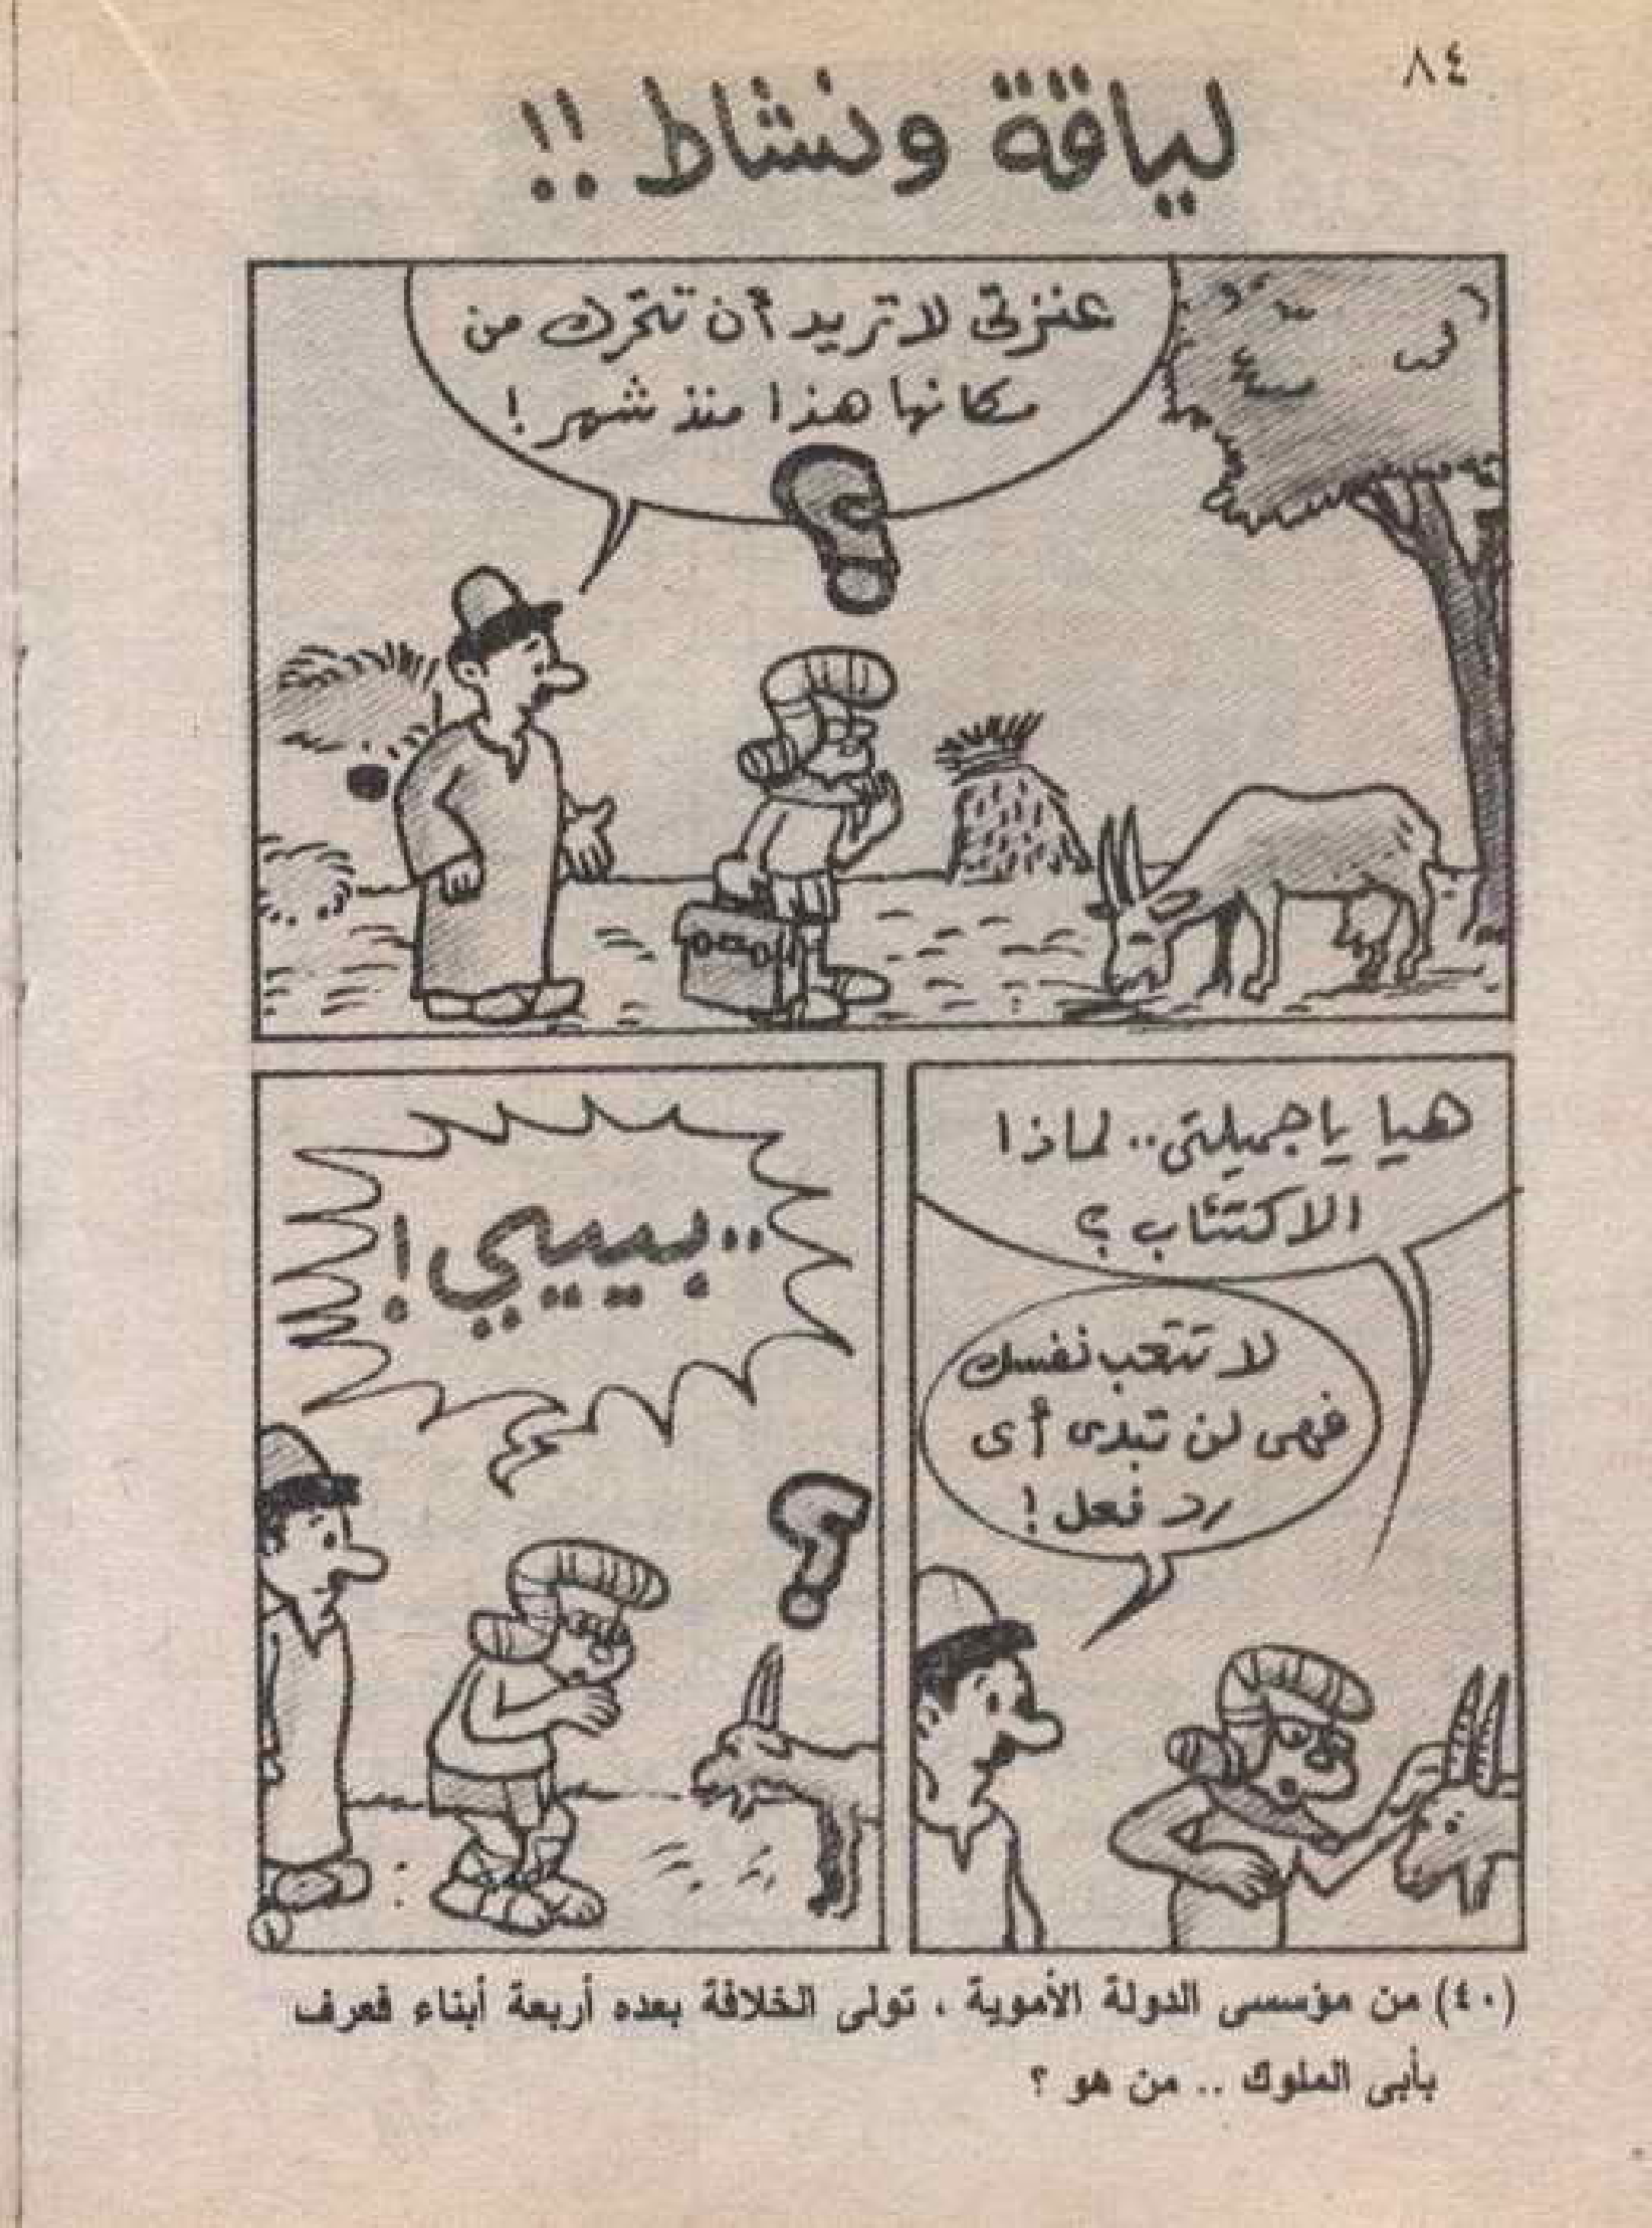 ٨٤
لياقة ونشاط !!
عنزتى لا تريد أن تتحرك من
مكانها هذا منذ شهر !
هيا يا جميلتى .. لماذا
الاكتئاب ؟
لا تتعب نفسك
فهى لن تبدى أى
رد فعل !
..بيييي !
١
(٤٠) من مؤسسى الدولة الأموية ، تولى الخلافة بعده أربعة أبناء فعرف
بأبى الملوك .. من هو ؟